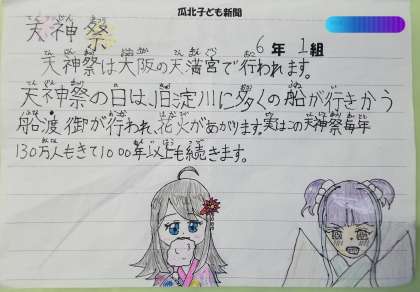 瓜北子ども新聞
天神祭
6年1組
天神祭は大阪の天満宮で行われます。
天神祭の日は、旧淀川に多くの船が行きかう
船渡御が行われ、花火があがります。実はこの天神祭毎年
130万人もきて1000年以上も続きます。